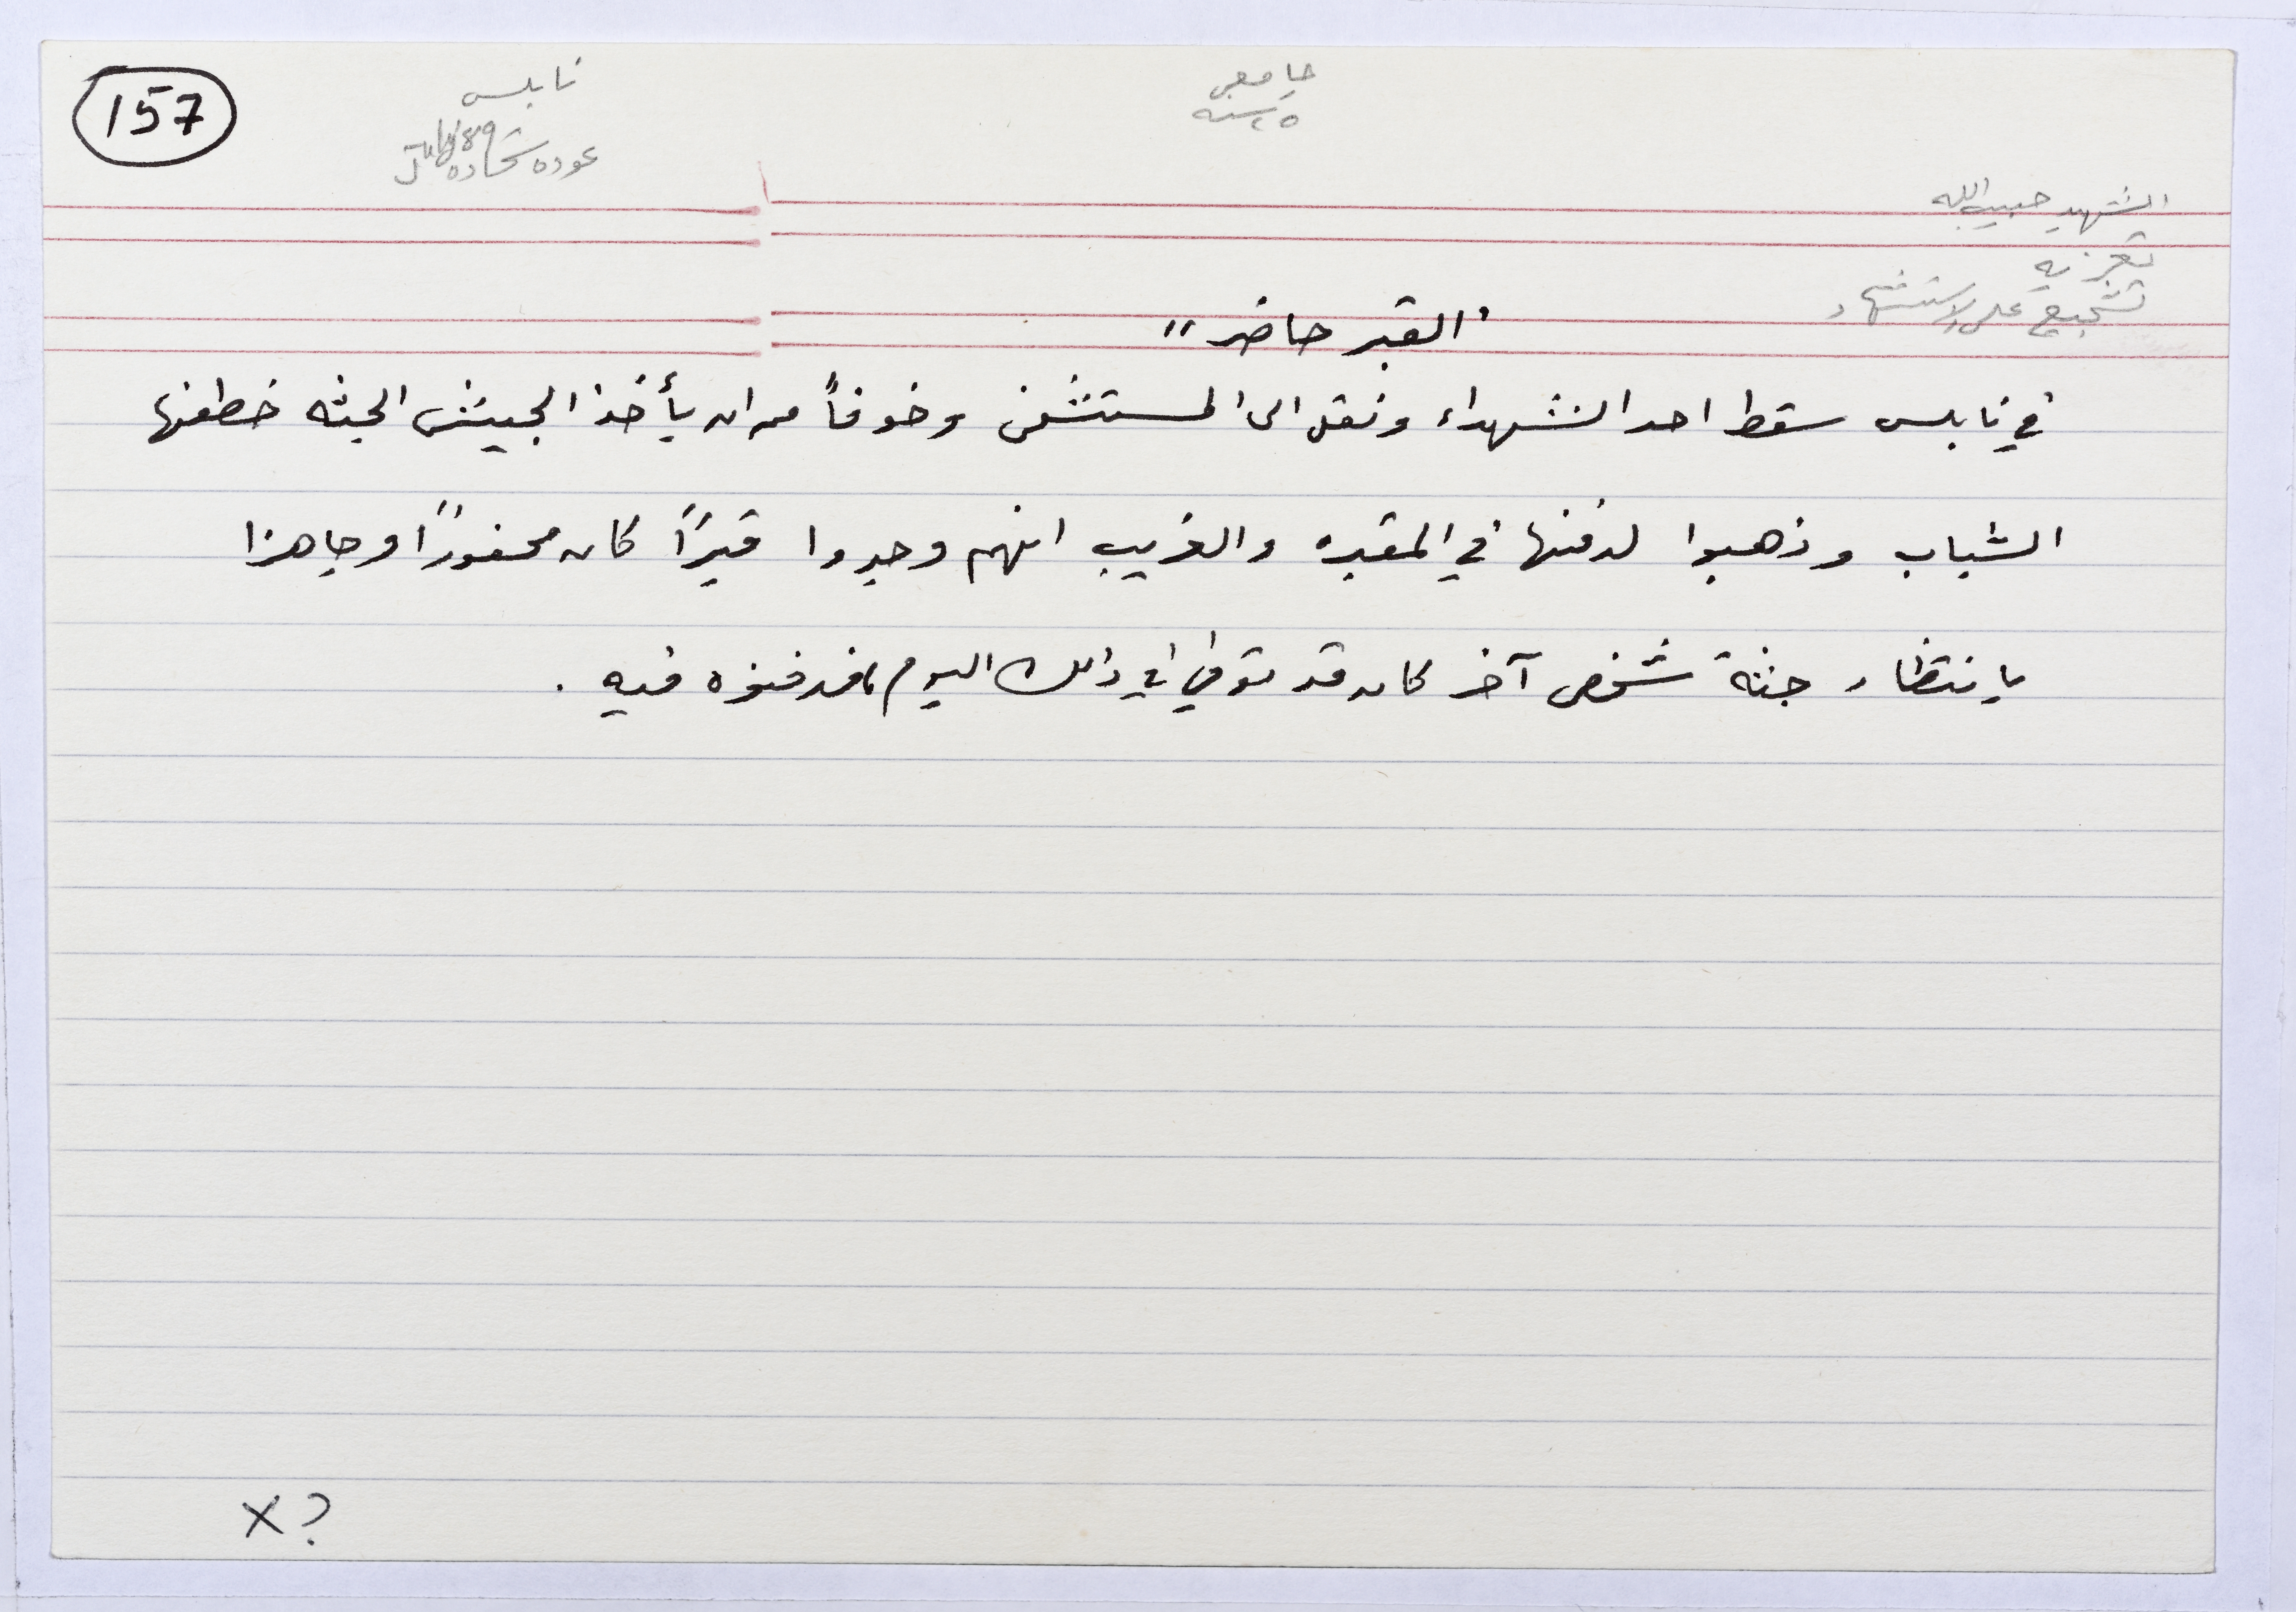 157
نابلس
July 89
عوده شحاده
جامعي
٢٥ سنه
الشهيد حبيب الله
تعزيه
تشجيع على الاستشهاد
"القبر حاضر"
في نابلس سقط احد الشهداء ونقل الى المستشفى وخوفاً من ان يأخذ الجيش الجثه خطفها
الشباب وذهبوا لدفنها في المقبره والغريب انهم وجدوا قبراً كان محفوراً وجاهزا
بانتظار جثة شخص آخر كان قد توفي في ذلك اليوم، فدفنوه فيه .
x ?